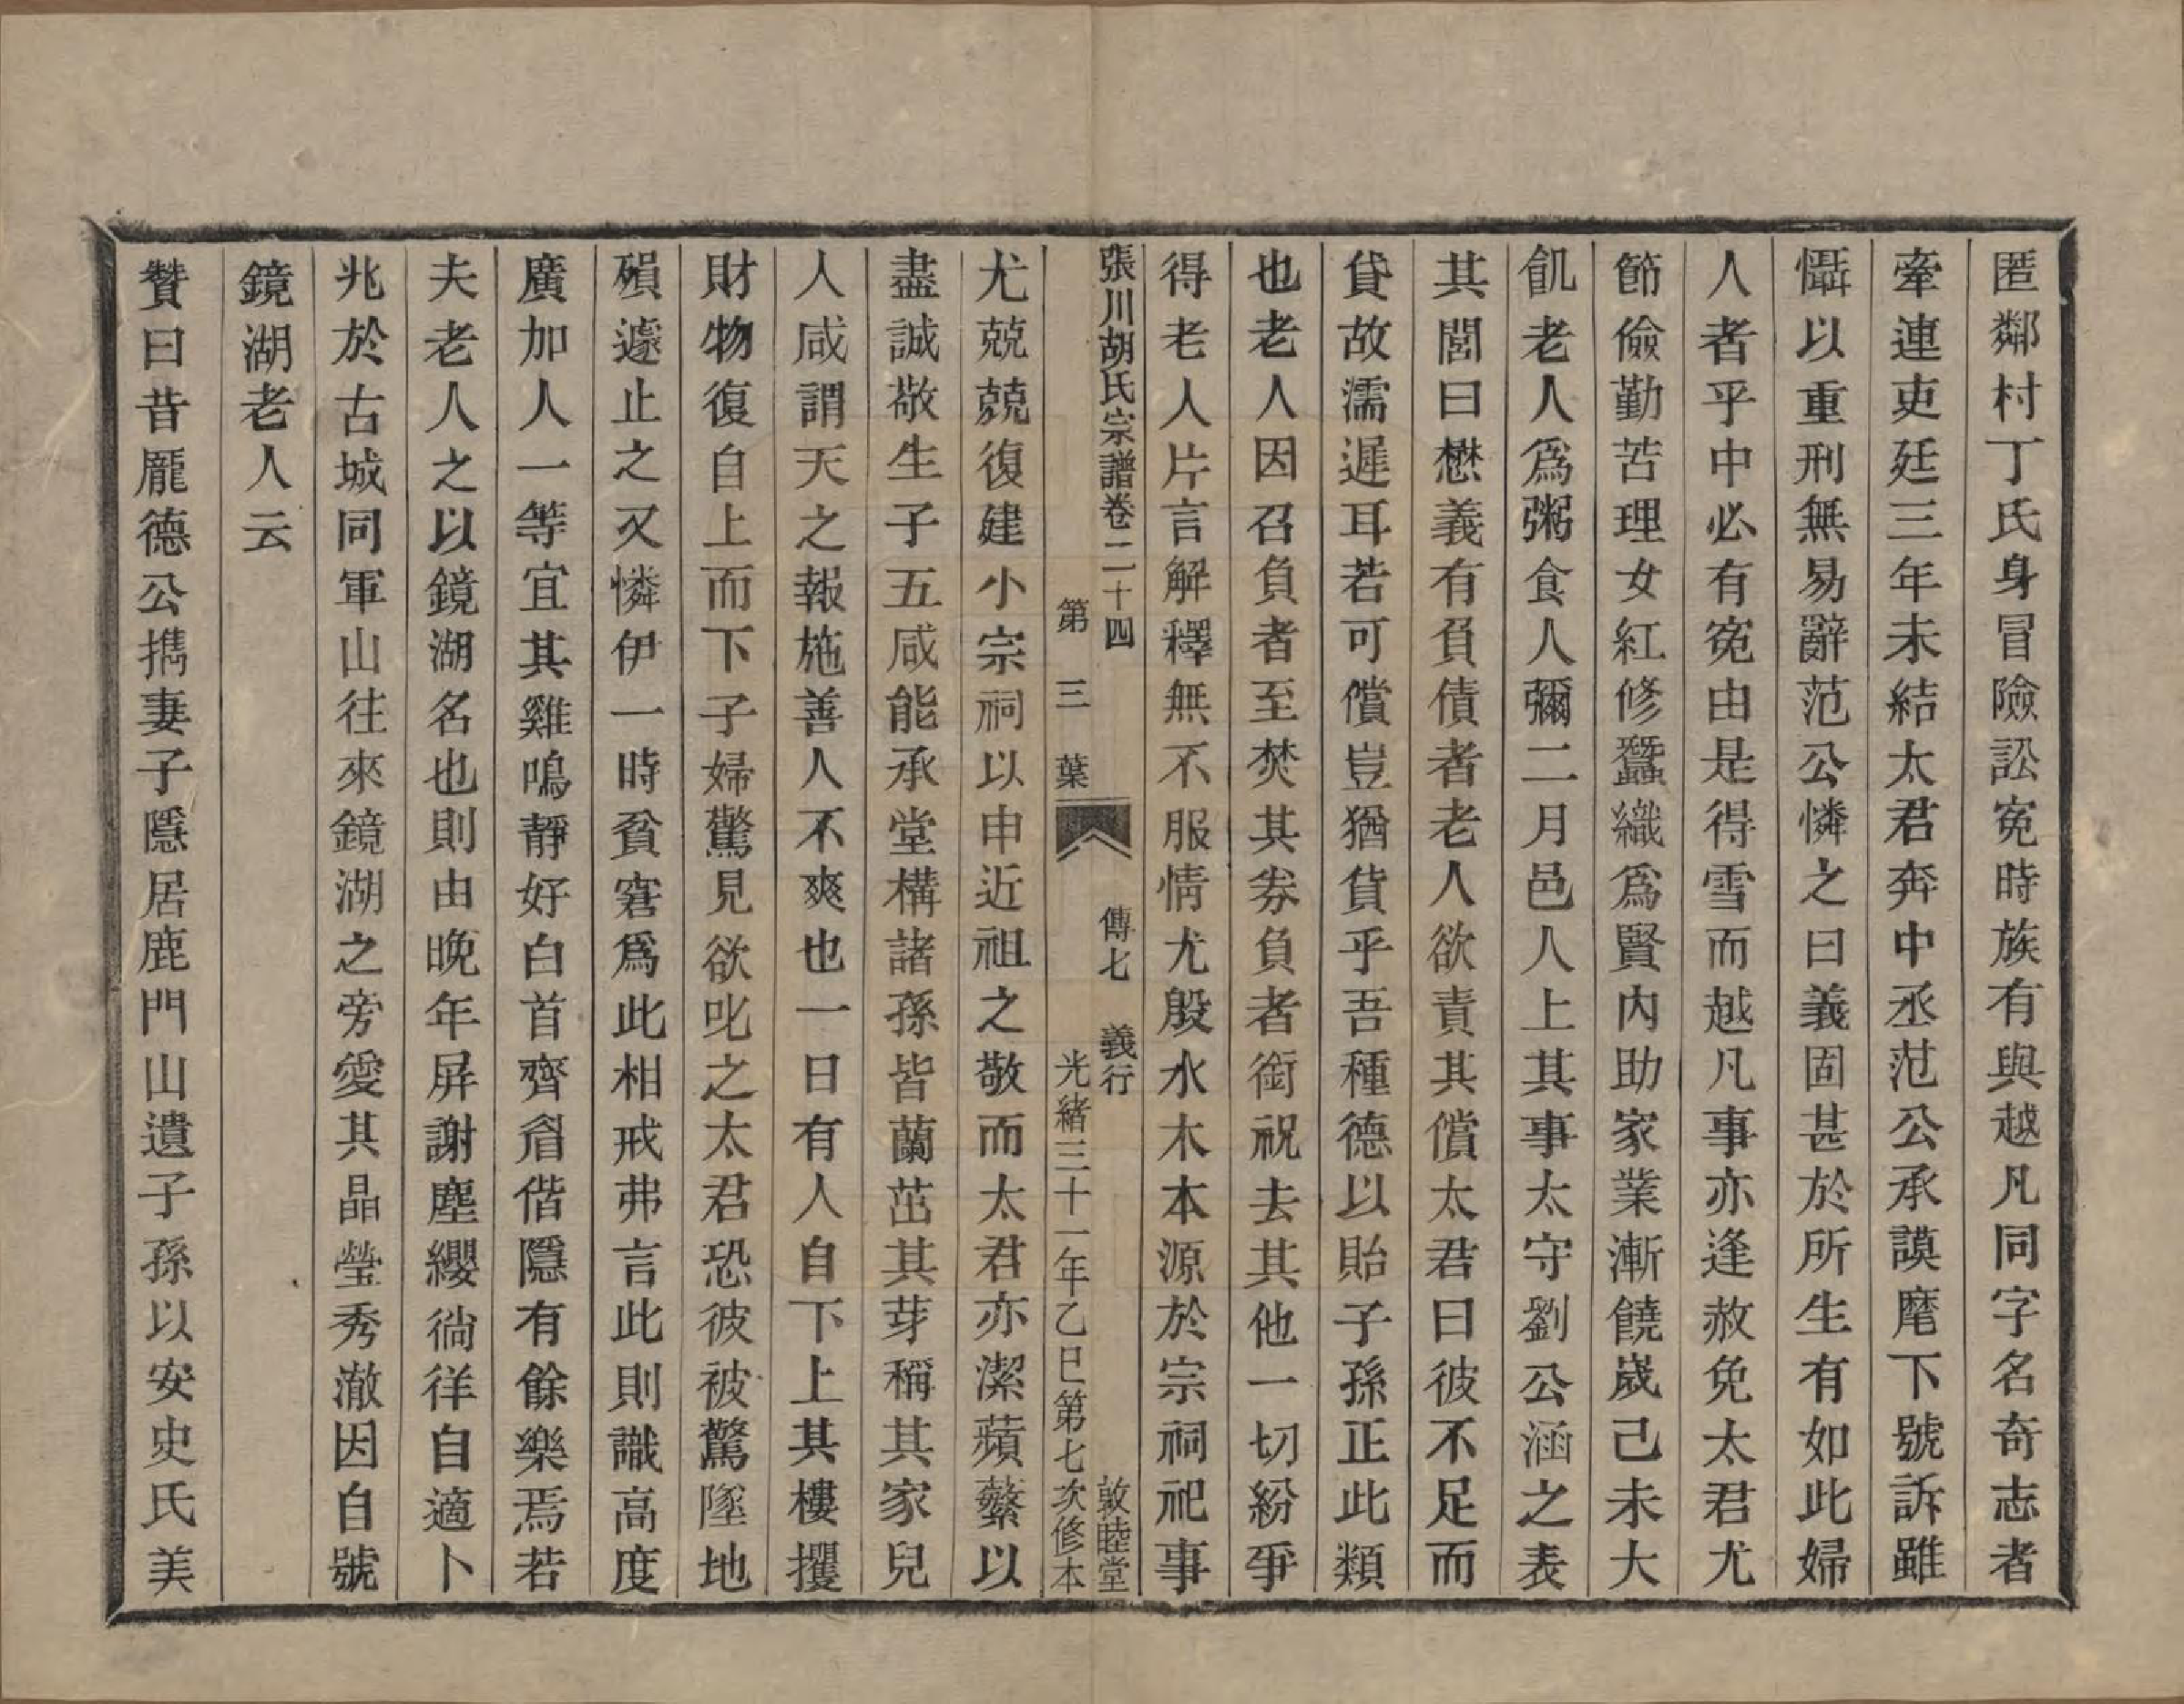 匿鄰村丁氏身冒險訟寃時族有與越凡同字名奇志者
牽連吏廷三年未結太君奔中丞范公承謨麾下號訴雖
懾以重刑無易辭范公憐之曰義固甚於所生有如此婦
人者乎中必有寃由是得雪而越凡事亦逢赦免太君尤
節儉勤苦理女紅修蠶織爲賢內助家業漸饒歲己未大
飢老人爲粥食人彌二月邑人上其事太守劉公涵之表
其閭曰懋義有負債者老人欲責其償太君曰彼不足而
貸故濡遲耳若可償豈猶貸乎吾種德以貽子孫正此類
也老人因召負者至焚其券負者銜祝去其他一切紛爭
得老人片言解釋無不服情尤殷水木本源於宗祠祀事
張川胡氏宗譜卷二十四 傳七 義行 敦睦堂
第三葉 光緒三十一年乙巳第七次修本
尤兢兢復建小宗祠以申近祖之敬而太君亦潔蘋蘩以
盡誠敬生子五咸能承堂構諸孫皆蘭茁其芽稱其家兒
人咸謂天之報施善人不爽也一日有人自下上其樓攫
財物復自上而下子婦驚見欲叱之太君恐彼被驚墜地
殞遽止之又憐伊一時貧窘爲此相戒弗言此則識高度
廣加人一等宜其雞鳴靜好白首齊眉偕隱有餘樂焉若
夫老人之以鏡湖名也則由晚年屏謝塵纓徜徉自適卜
兆於古城同軍山往來鏡湖之旁愛其晶瑩秀澈因自號
鏡湖老人云
贊曰昔龎德公攜妻子隱居鹿門山遺子孫以安史氏美